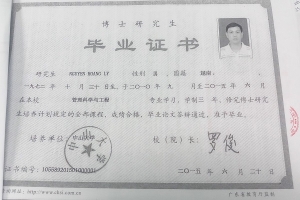 博士研究生
毕业证书
研究生 NGUYEN HOANG LY 性别 男, 国籍 越南,
一九七二年 十月二十日生, 于二〇一〇年 九月至二〇一五年 六月
在本校 管理科学与工程 专业学习, 学制三年, 修完博士研究
生培养计划规定的全部课程, 成绩合格, 毕业论文答辩通过, 准予毕业。
培养单位: 校(院)长: 罗俊
证书编号:
二〇一五年 六月二十日